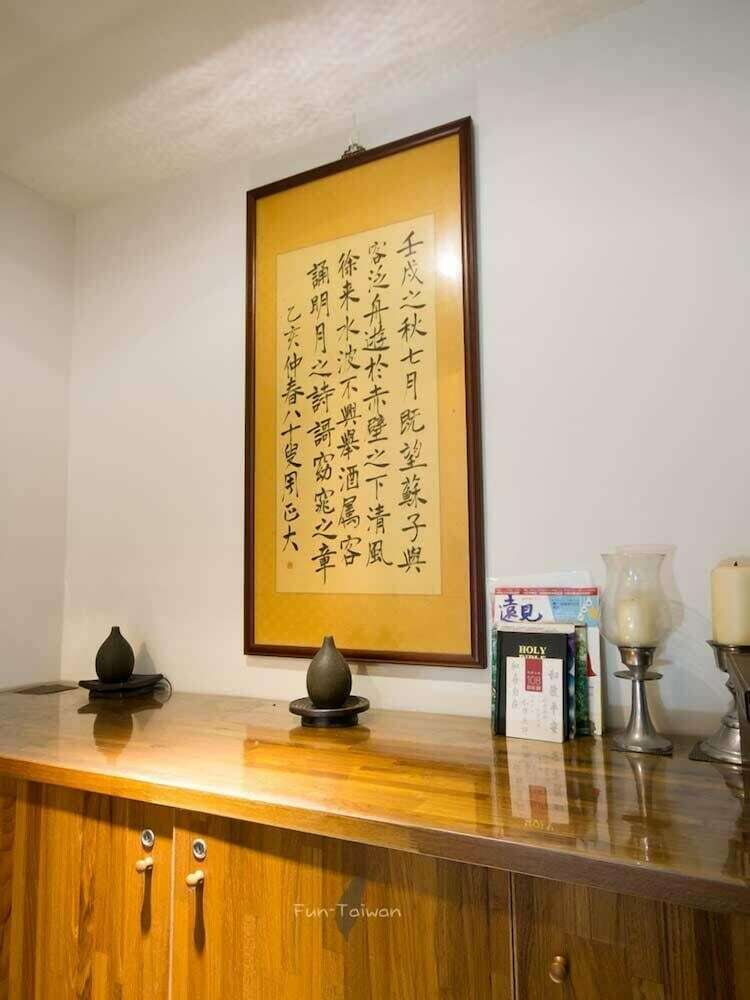 壬戌之秋七月既望蘇子與
客泛舟遊於赤壁之下清風
徐来水波不興舉酒属客
誦明月之詩謌窈窕之章
乙亥仲春八十叟周正大
遠見
HOLY
BIBLE
108
Fun-Taiwan